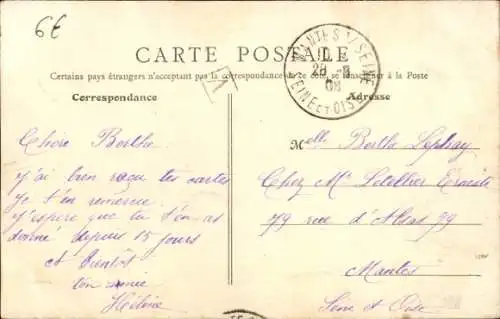 6€
CARTE POSTALE
Certains pays étrangers n'acceptant pas la correspondance de ce côté, se renseigner à la Poste
Correspondance
Adresse
MANTES S/SEINE
08
SEINE ET OISE
Chère Berthe
j'ai bien reçu tes cartes
Je t'en remercie
j'espère que tu t'en as
donné depuis 15 jours
A Bientôt
ton amie
Hélène
Melle Berthe
Chez Mr Letellier
79 rue d'Alsas 79
Mantes
Seine et Oise